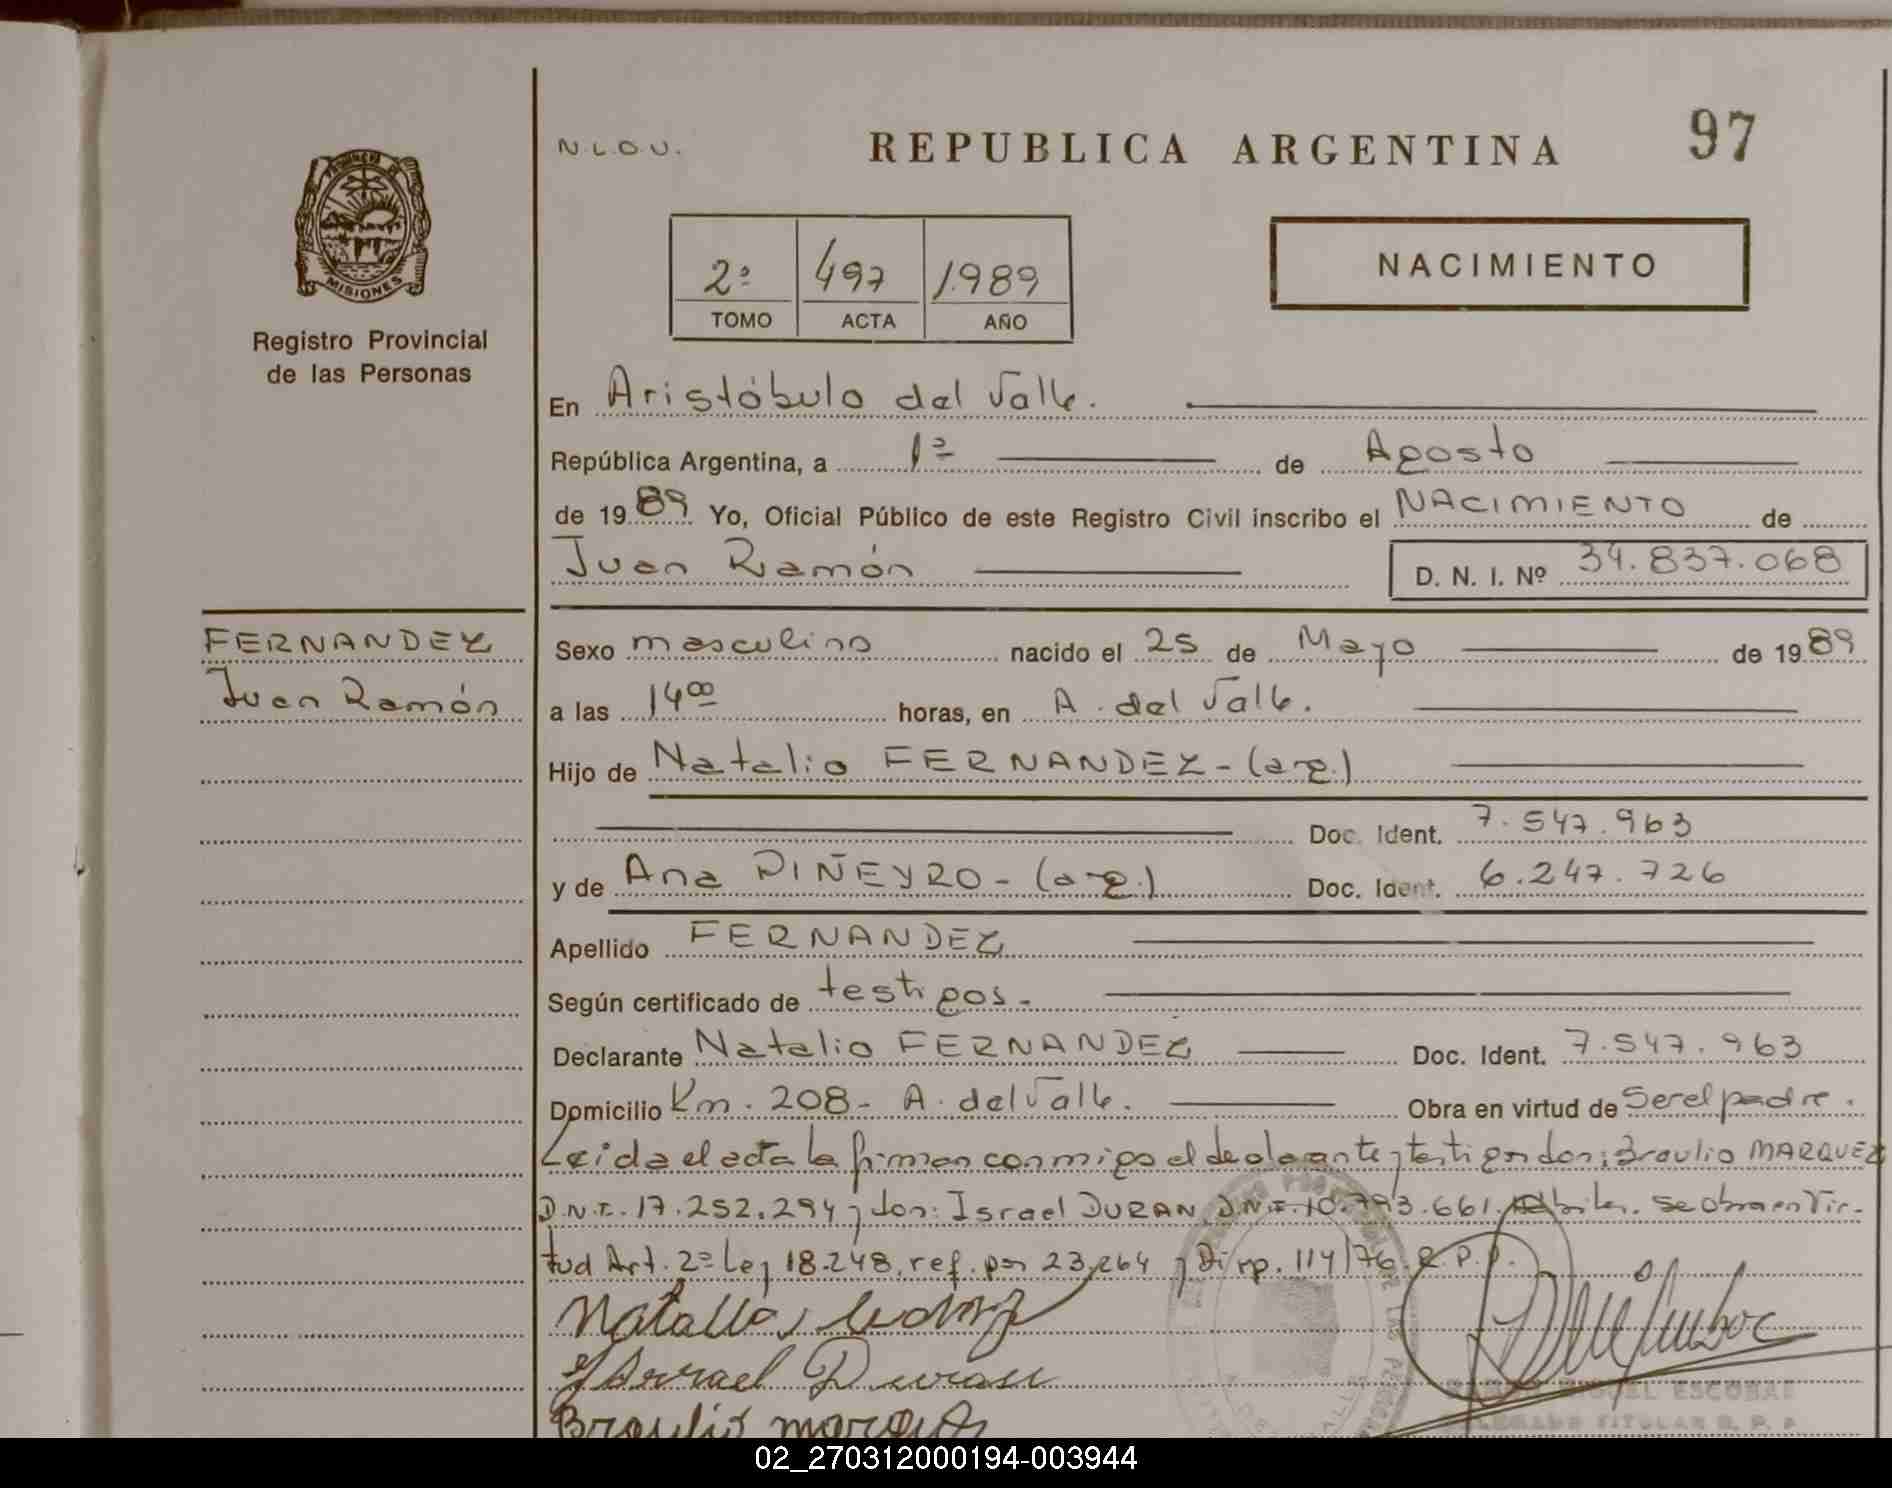 N.L.O.U.
REPUBLICA ARGENTINA
97
MISIONES
Registro Provincial
de las Personas
2º 497 1.989
TOMO ACTA AÑO
NACIMIENTO
En Aristóbulo del Valle.
República Argentina, a 1º de Agosto
de 1989 Yo, Oficial Público de este Registro Civil inscribo el NACIMIENTO de
Juan Ramón D. N. I. Nº 34.837.068
FERNANDEZ
Juan Ramón
Sexo masculino nacido el 25 de Mayo de 1989
a las 14oo horas, en A. del Valle.
Hijo de Natalio FERNANDEZ - (arg.)
Doc. Ident. 7.547.963
y de Ana PIÑEYRO - (arg.) Doc. Ident. 6.247.726
Apellido FERNANDEZ
Según certificado de testigos.
Declarante Natalio FERNANDEZ Doc. Ident. 7.547.963
Domicilio Km. 208 - A. del Valle. Obra en virtud de ser el padre.
Leida el acta la firman conmigo el declarante y testigos don: Braulio MARQUEZ
D.N.I. 17.252.294 y don: Israel DURAN D.N.I. 10.793.661. hábiles. Se obra en vir-
tud Art. 2º Ley 18.248, ref. por 23.264 y Disp. 114/76. R.P.P.
Israel Duran
Braulio marquez
MIGUEL ESCOBAR
DELEGADO TITULAR R. P. P.
02_270312000194-003944